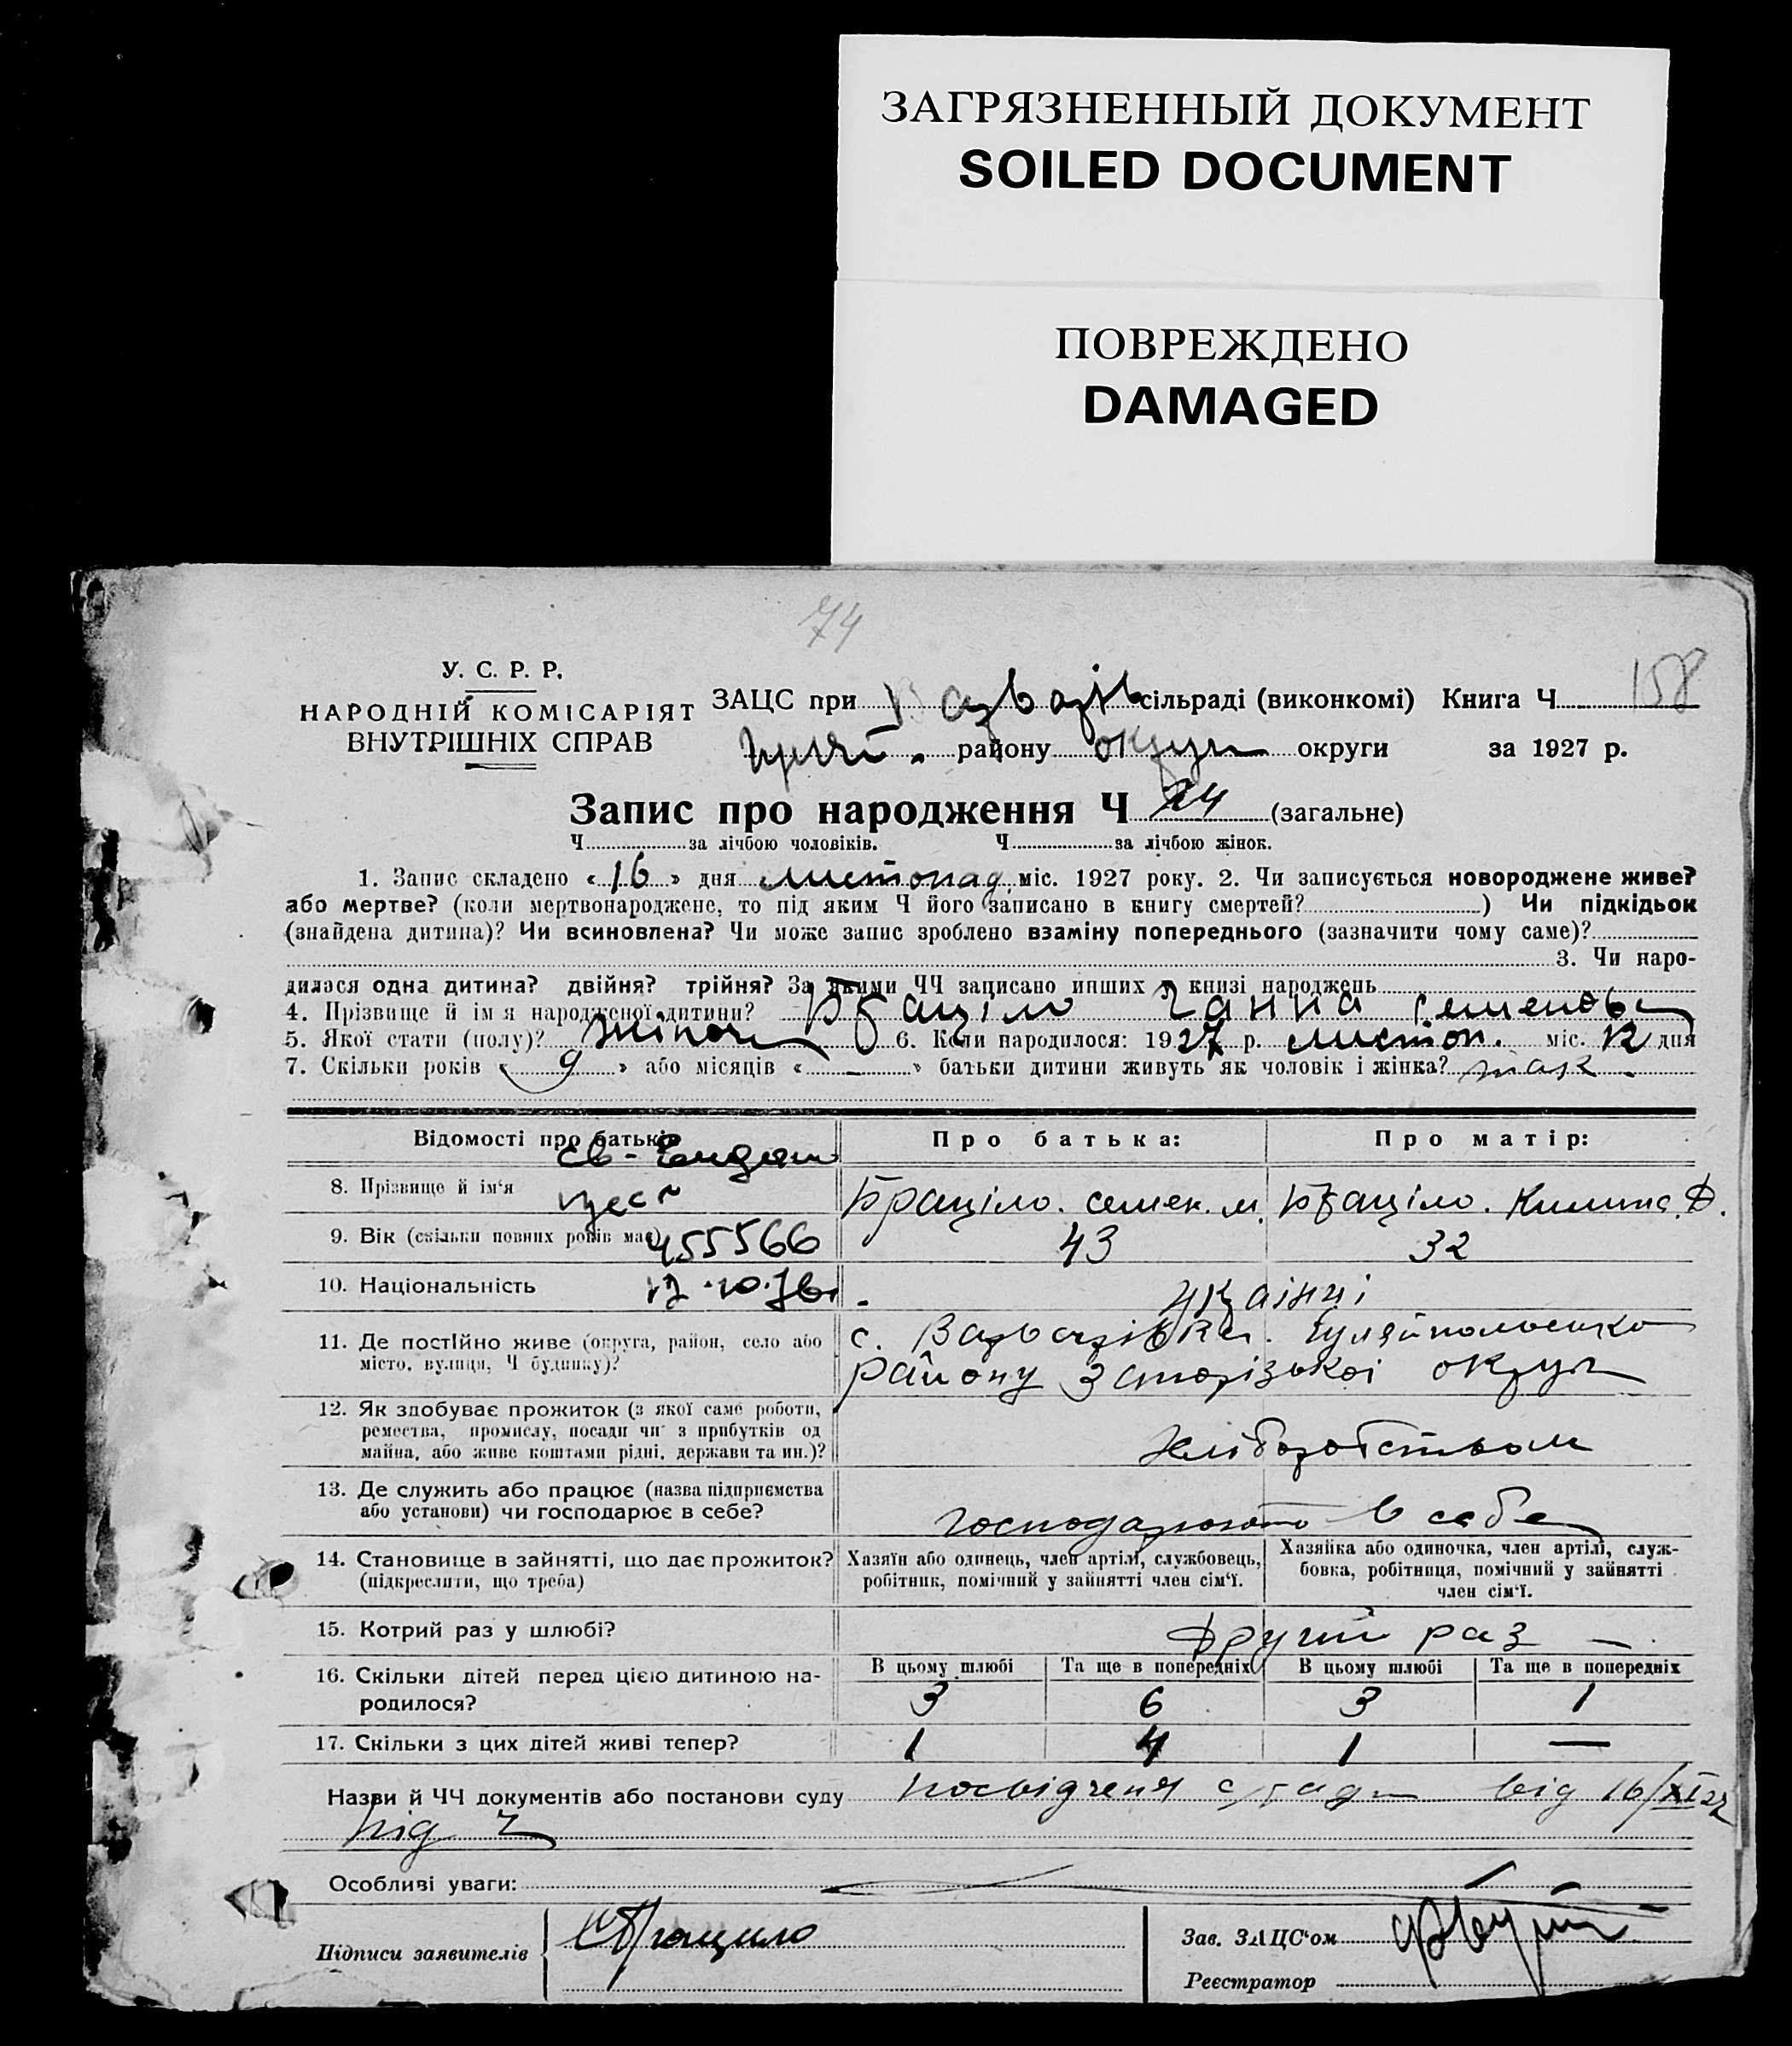 ЗАГРЯЗНЕННЫЙ ДОКУМЕНТ
SOILED DOCUMENT
ПОВРЕЖДЕНО
DAMAGED
74
158
У. С. Р. Р.
НАРОДНІЙ КОМІСАРІЯТ
ВНУТРІШНІХ СПРАВ
ЗАЦС при Варварів сільраді (виконкомі) Книга Ч
району округи округи за 1927 р.
Запис про народження Ч 24 (загальне)
Ч за лічбою чоловіків. Ч за лічбою жінок.
1. Запис складено «16» дня листопад міс. 1927 року. 2. Чи записується новороджене живе?
або мертве? (коли мертвонароджене, то під яким Ч його записано в книгу смертей? ) Чи підкідьок
(знайдена дитина)? Чи всиновлена? Чи може запис зроблено взаміну попереднього (зазначити чому саме)?
3. Чи наро-
дилася одна дитина? двійня? трійня? За якими ЧЧ записано инших в книзі народжень
4. Прізвище й ім я народженої дитини? Браціло Ганна Семенов
5. Якої стати (полу)? жіноч 6. Коли народилося: 1927 р. листоп. міс. 12 дня
7. Скільки років «9» або місяців «—» батьки дитини живуть як чоловік і жінка? так
Відомості про батьків Про батька: Про матір:
8. Прізвище й ім'я Браціло. Семен. М. Браціло. Килина. Ф.
9. Вік (скільки повних років має) 455566 43 32
10. Національність 12.10.76 українці
11. Де постійно живе (округа, район, село або с. Варварівка. Гуляйпольського
місто, вулиця, Ч будинку)? району Запорізької округи
12. Як здобуває прожиток (з якої саме роботи,
ремества, промислу, посади чи з прибутків од
майна, або живе коштами рідні, держави та ин.)? хліборобством
13. Де служить або працює (назва підприємства
або установи) чи господарює в себе? господарюють в себе
14. Становище в зайнятті, що дає прожиток? Хазяїн або одинець, член артілі, службовець, Хазяйка або одиночка, член артілі, служ-
(підкреслити, що треба) робітник, помічний у зайнятті член сім'ї. бовка, робітниця, помічний у зайнятті
член сім'ї.
15. Котрий раз у шлюбі? другий раз —
16. Скільки дітей перед цією дитиною на- В цьому шлюбі Та ще в попередніх В цьому шлюбі Та ще в попередніх
родилося? 3 6 3 1
17. Скільки з цих дітей живі тепер? 1 4 1 —
Назви й ЧЧ документів або постанови суду посвідченя с/ради від 16/XI 27
під Ч
Особливі уваги:
Підписи заявителів СБрацило Зав. ЗАЦС'ом
Реєстратор